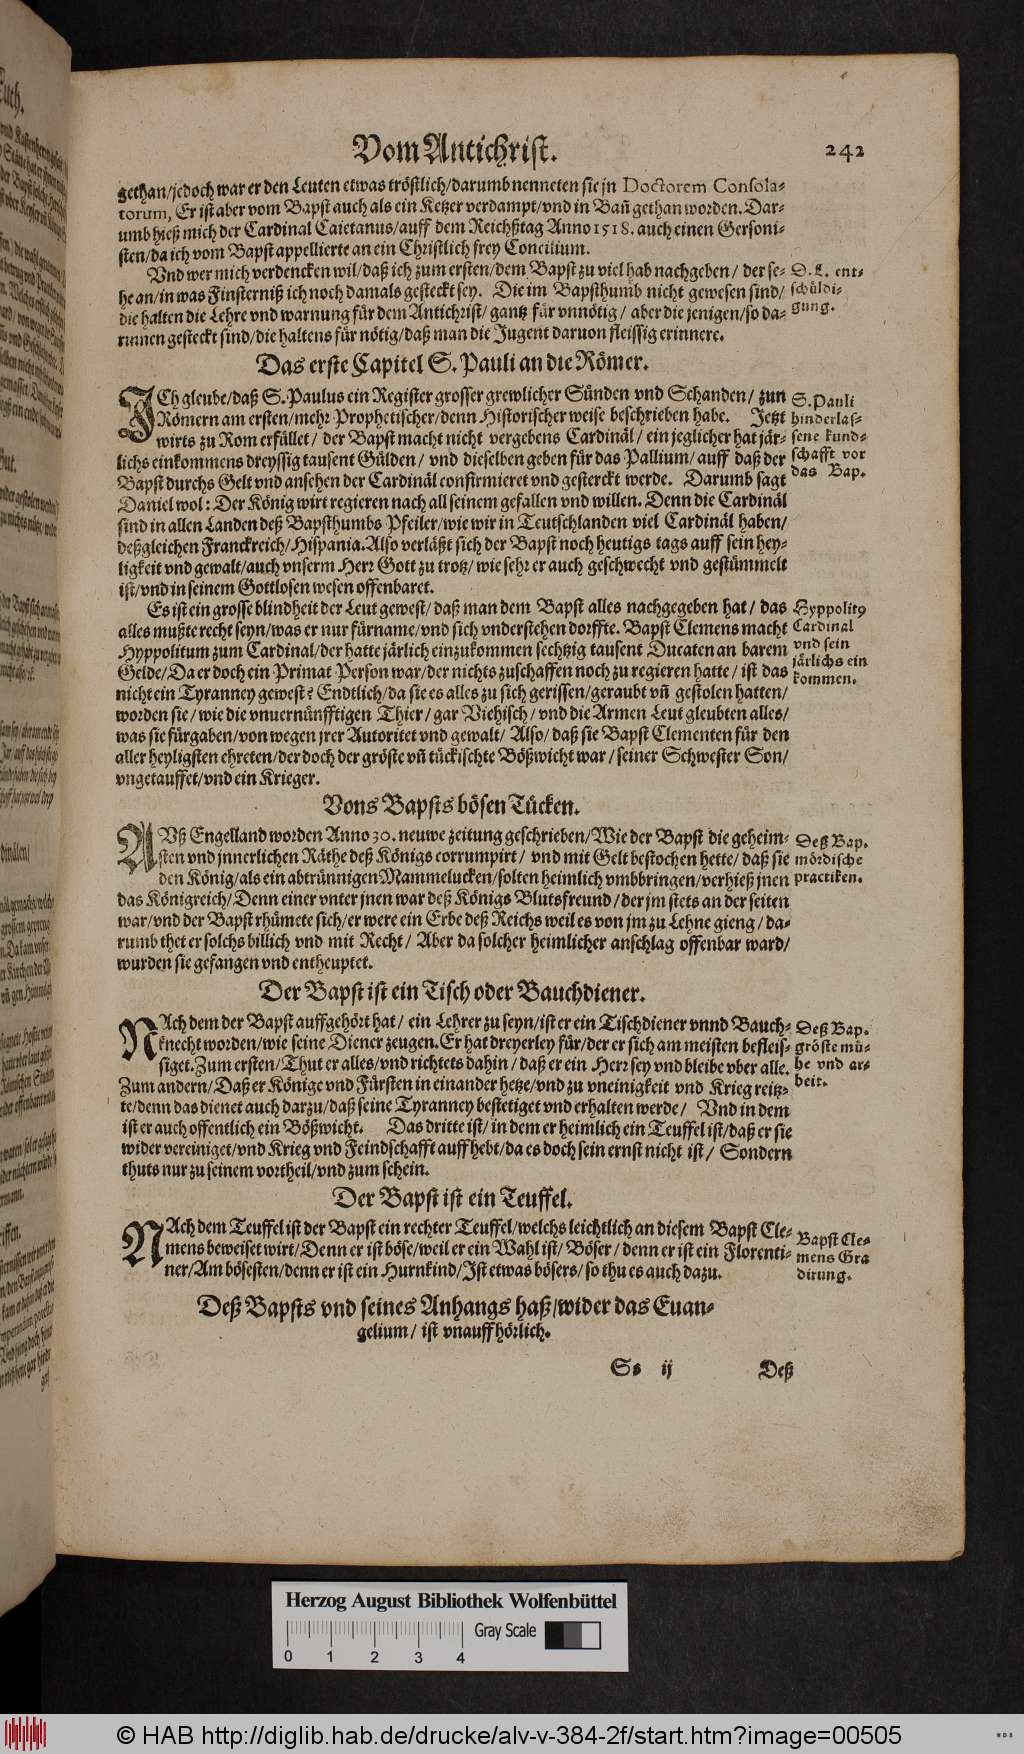 Vom Antichrist.
242
gethan/jedoch war er den Leuten etwas tröstlich/darumb nenneten sie jn Doctorem Consola-
torum, Er ist aber vom Bapst auch als ein Ketzer verdampt/vnd in Bañ gethan worden. Dar-
umb hieß mich der Cardinal Caietanus/auff dem Reichßtag Anno 1518. auch einen Gersoni-
sten/da ich vom Bapst appellierte an ein Christlich frey Concilium.
Vnd wer mich verdencken wil/daß ich zum ersten/dem Bapst zu viel hab nachgeben/ der se-
he an/in was Finsterniß ich noch damals gesteckt sey. Die im Bapsthumb nicht gewesen sind/
die halten die Lehre vnd warnung für dem Antichrist/ gantz für vnnötig / aber die jenigen/so da-
rinnen gesteckt sind/die haltens für nötig/daß man die Jugent daruon fleissig erinnere.
D. L. ent-
schüldi-
gung.
Das erste Capitel S. Pauli an die Römer.
JCh gleube/daß S. Paulus ein Register grosser grewlicher Sünden vnd Schanden/ zun
Römern am ersten/mehr Prophetischer/denn Historischer weise beschrieben habe. Jetzt
wirts zu Rom erfüllet/ der Bapst macht nicht vergebens Cardinäl/ ein jeglicher hat jär-
lichs einkommens dreyssig tausent Gülden/ vnd dieselben geben für das Pallium/ auff daß der
Bapst durchs Gelt vnd ansehen der Cardinäl confirmieret vnd gesterckt werde. Darumb sagt
Daniel wol: Der König wirt regieren nach all seinem gefallen vnd willen. Denn die Cardinäl
sind in allen Landen deß Bapsthumbs Pfeiler/wie wir in Teutschlanden viel Cardinäl haben/
deßgleichen Franckreich/Hispania. Also verläßt sich der Bapst noch heutigs tags auff sein hey-
ligkeit vnd gewalt/auch vnserm Herr Gott zu trotz/ wie sehr er auch geschwecht vnd gestümmelt
ist/vnd in seinem Gottlosen wesen offenbaret.
S. Pauli
hinderlas-
sene kund-
schafft vor
das Bap.
Es ist ein grosse blindheit der Leut gewest/ daß man dem Bapst alles nachgegeben hat/ das
alles mußte recht seyn/was er nur fürname/vnd sich vnderstehen dorffte. Bapst Clemens macht
Hyppolitum zum Cardinal/der hatte järlich einzukommen sechtzig tausent Ducaten an barem
Gelde/Da er doch ein Primat Person war/der nichts zuschaffen noch zu regieren hatte/ ist das
nicht ein Tyranney gewest? Endtlich/da sie es alles zu sich gerissen/geraubt vñ gestolen hatten/
worden sie/ wie die vnuernünfftigen Thier/ gar Viehisch/ vnd die Armen Leut gleubten alles/
was sie fürgaben/von wegen jrer Autoritet vnd gewalt/ Also/ daß sie Bapst Clementen für den
aller heyligsten ehreten/der doch der gröste vñ tückischte Bößwicht war/seiner Schwester Son/
vngetauffet/vnd ein Krieger.
Hyppolitꝰ
Cardinal
vnd sein
järlichs ein
kommen.
Vons Bapsts bösen Tücken.
AVß Engelland worden Anno 30. neuwe zeitung geschrieben/Wie der Bapst die geheim-
sten vnd jnnerlichen Räthe deß Königs corrumpirt/ vnd mit Gelt bestochen hette/ daß sie
den König/als ein abtrünnigen Mammelucken/solten heimlich vmbbringen/verhieß jnen
das Königreich/Denn einer vnter jnen war deß Königs Blutsfreund/der jm stets an der seiten
war/vnd der Bapst rhümete sich/er were ein Erbe deß Reichs weil es von jm zu Lehne gieng/ da-
rumb thet er solchs billich vnd mit Recht/ Aber da solcher heimlicher anschlag offenbar ward/
wurden sie gefangen vnd entheuptet.
Deß Bap.
mördische
practiken.
Der Bapst ist ein Tisch oder Bauchdiener.
NAch dem der Bapst auffgehört hat/ ein Lehrer zu seyn/ist er ein Tischdiener vnnd Bauch-
knecht worden/wie seine Diener zeugen. Er hat dreyerley für/der er sich am meisten befleis-
siget. Zum ersten/Thut er alles/vnd richtets dahin/ daß er ein Herr sey vnd bleibe vber alle.
Zum andern/Daß er Könige vnd Fürsten in einander hetze/vnd zu vneinigkeit vnd Krieg reitz-
te/denn das dienet auch darzu/daß seine Tyranney bestetiget vnd erhalten werde/ Vnd in dem
ist er auch offentlich ein Bößwicht. Das dritte ist/ in dem er heimlich ein Teuffel ist/daß er sie
wider vereiniget/vnd Krieg vnd Feindschafft auffhebt/da es doch sein ernst nicht ist/ Sondern
thuts nur zu seinem vortheil/vnd zum schein.
Deß Bap.
gröste mü-
he vnd ar-
beit.
Der Bapst ist ein Teuffel.
NAch dem Teuffel ist der Bapst ein rechter Teuffel/welchs leichtlich an diesem Bapst Cle-
mens beweiset wirt/Denn er ist böse/weil er ein Wahl ist/ Böser/ denn er ist ein Florenti-
ner/Am bösesten/denn er ist ein Hurnkind/Ist etwas bösers/ so thu es auch dazu.
Bapst Cle-
mens Gra
dirung.
Deß Bapsts vnd seines Anhangs haß/wider das Euan-
gelium/ ist vnauffhörlich.
Ss ij
Deß
Herzog August Bibliothek Wolfenbüttel
Gray Scale
0 1 2 3 4
© HAB http://diglib.hab.de/drucke/alv-v-384-2f/start.htm?image=00505